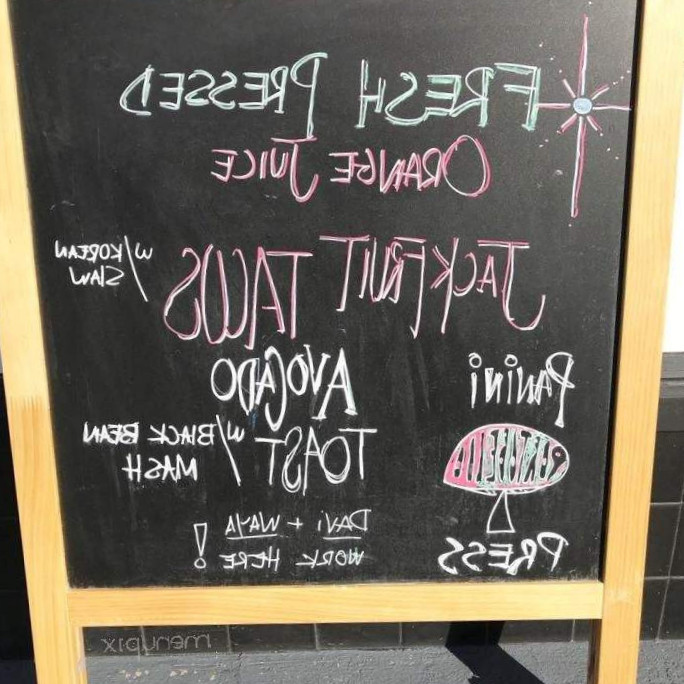 FRESH PRESSED
ORANGE JUICE
JACKFRUIT TACOS w/ KOREAN
SLAW
PANINI
PRESS
AVOCADO
TOAST w/ BLACK BEAN
MASH
DAVI + WAYA
WORK HERE!
menupix